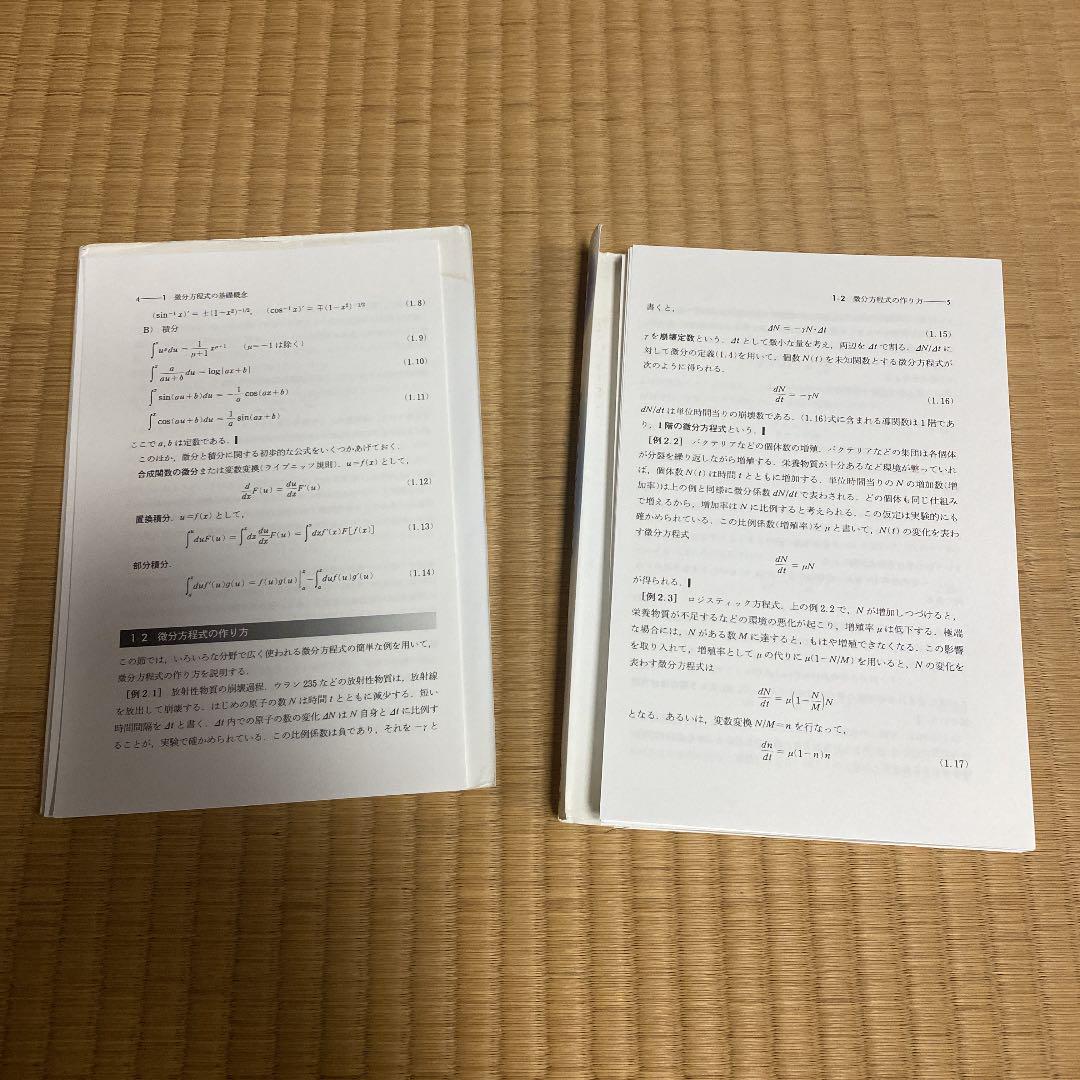 4——1 微分方程式の基礎概念
(sin⁻¹x)′ = ±(1−x²)^{−1/2}, (cos⁻¹x)′ = ∓(1−x²)^{−1/2} (1.8)
B) 積分
∫^x u^p du = 1/(p+1) x^{p+1} (p=−1は除く) (1.9)
∫^x a/(au+b) du = log|ax+b| (1.10)
∫^x sin(au+b)du = −1/a cos(ax+b)
∫^x cos(au+b)du = 1/a sin(ax+b) (1.11)
ここで a, b は定数である. ▌
このほか, 微分と積分に関する初歩的な公式をいくつかあげておく.
合成関数の微分または変数変換(ライプニッツ規則). u=f(x)として,
d/dx F(u) = du/dx F′(u) (1.12)
置換積分. u=f(x)として,
∫^u duF(u) = ∫^x dx du/dx F(u) = ∫^x dxf′(x)F[f(x)] (1.13)
部分積分.
∫_a^x duf′(u)g(u) = f(u)g(u)|_a^x − ∫_a^x duf(u)g′(u) (1.14)
1-2 微分方程式の作り方
この節では, いろいろな分野で広く使われる微分方程式の簡単な例を用いて,
微分方程式の作り方を説明する.
[例2.1] 放射性物質の崩壊過程. ウラン235などの放射性物質は, 放射線
を放出して崩壊する. はじめの原子の数Nは時間tとともに減少する. 短い
時間間隔をΔtと書く. Δt内での原子の数の変化ΔNはN自身とΔtに比例す
ることが, 実験で確かめられている. この比例係数は負であり, それを−γと
1-2 微分方程式の作り方——5
書くと,
ΔN = −γN·Δt (1.15)
γを崩壊定数という. Δtとして微小な量を考え, 両辺をΔtで割る. ΔN/Δtに
対して微分の定義(1.4)を用いて, 個数N(t)を未知関数とする微分方程式が
次のように得られる.
dN/dt = −γN (1.16)
dN/dtは単位時間当りの崩壊数である. (1.16)式に含まれる導関数は1階であ
り, 1階の微分方程式という. ▌
[例2.2] バクテリアなどの個体数の増殖. バクテリアなどの集団は各個体
が分裂を繰り返しながら増殖する. 栄養物質が十分あるなど環境が整っていれ
ば, 個体数N(t)は時間tとともに増加する. 単位時間当りのNの増加数(増
加率)は上の例と同様に微分係数dN/dtで表わされる. どの個体も同じ仕組み
で増えるから, 増加率はNに比例すると考えられる. この仮定は実験的にも
確かめられている. この比例係数(増殖率)をμと書いて, N(t)の変化を表わ
す微分方程式
dN/dt = μN
が得られる. ▌
[例2.3] ロジスティック方程式. 上の例2.2で, Nが増加しつづけると,
栄養物質が不足するなどの環境の悪化が起こり, 増殖率μは低下する. 極端
な場合には, Nがある数Mに達すると, もはや増殖できなくなる. この影響
を取り入れて, 増殖率としてμの代りにμ(1−N/M)を用いると, Nの変化を
表わす微分方程式は
dN/dt = μ(1−N/M)N
となる. あるいは, 変数変換N/M=nを行なって,
dn/dt = μ(1−n)n (1.17)